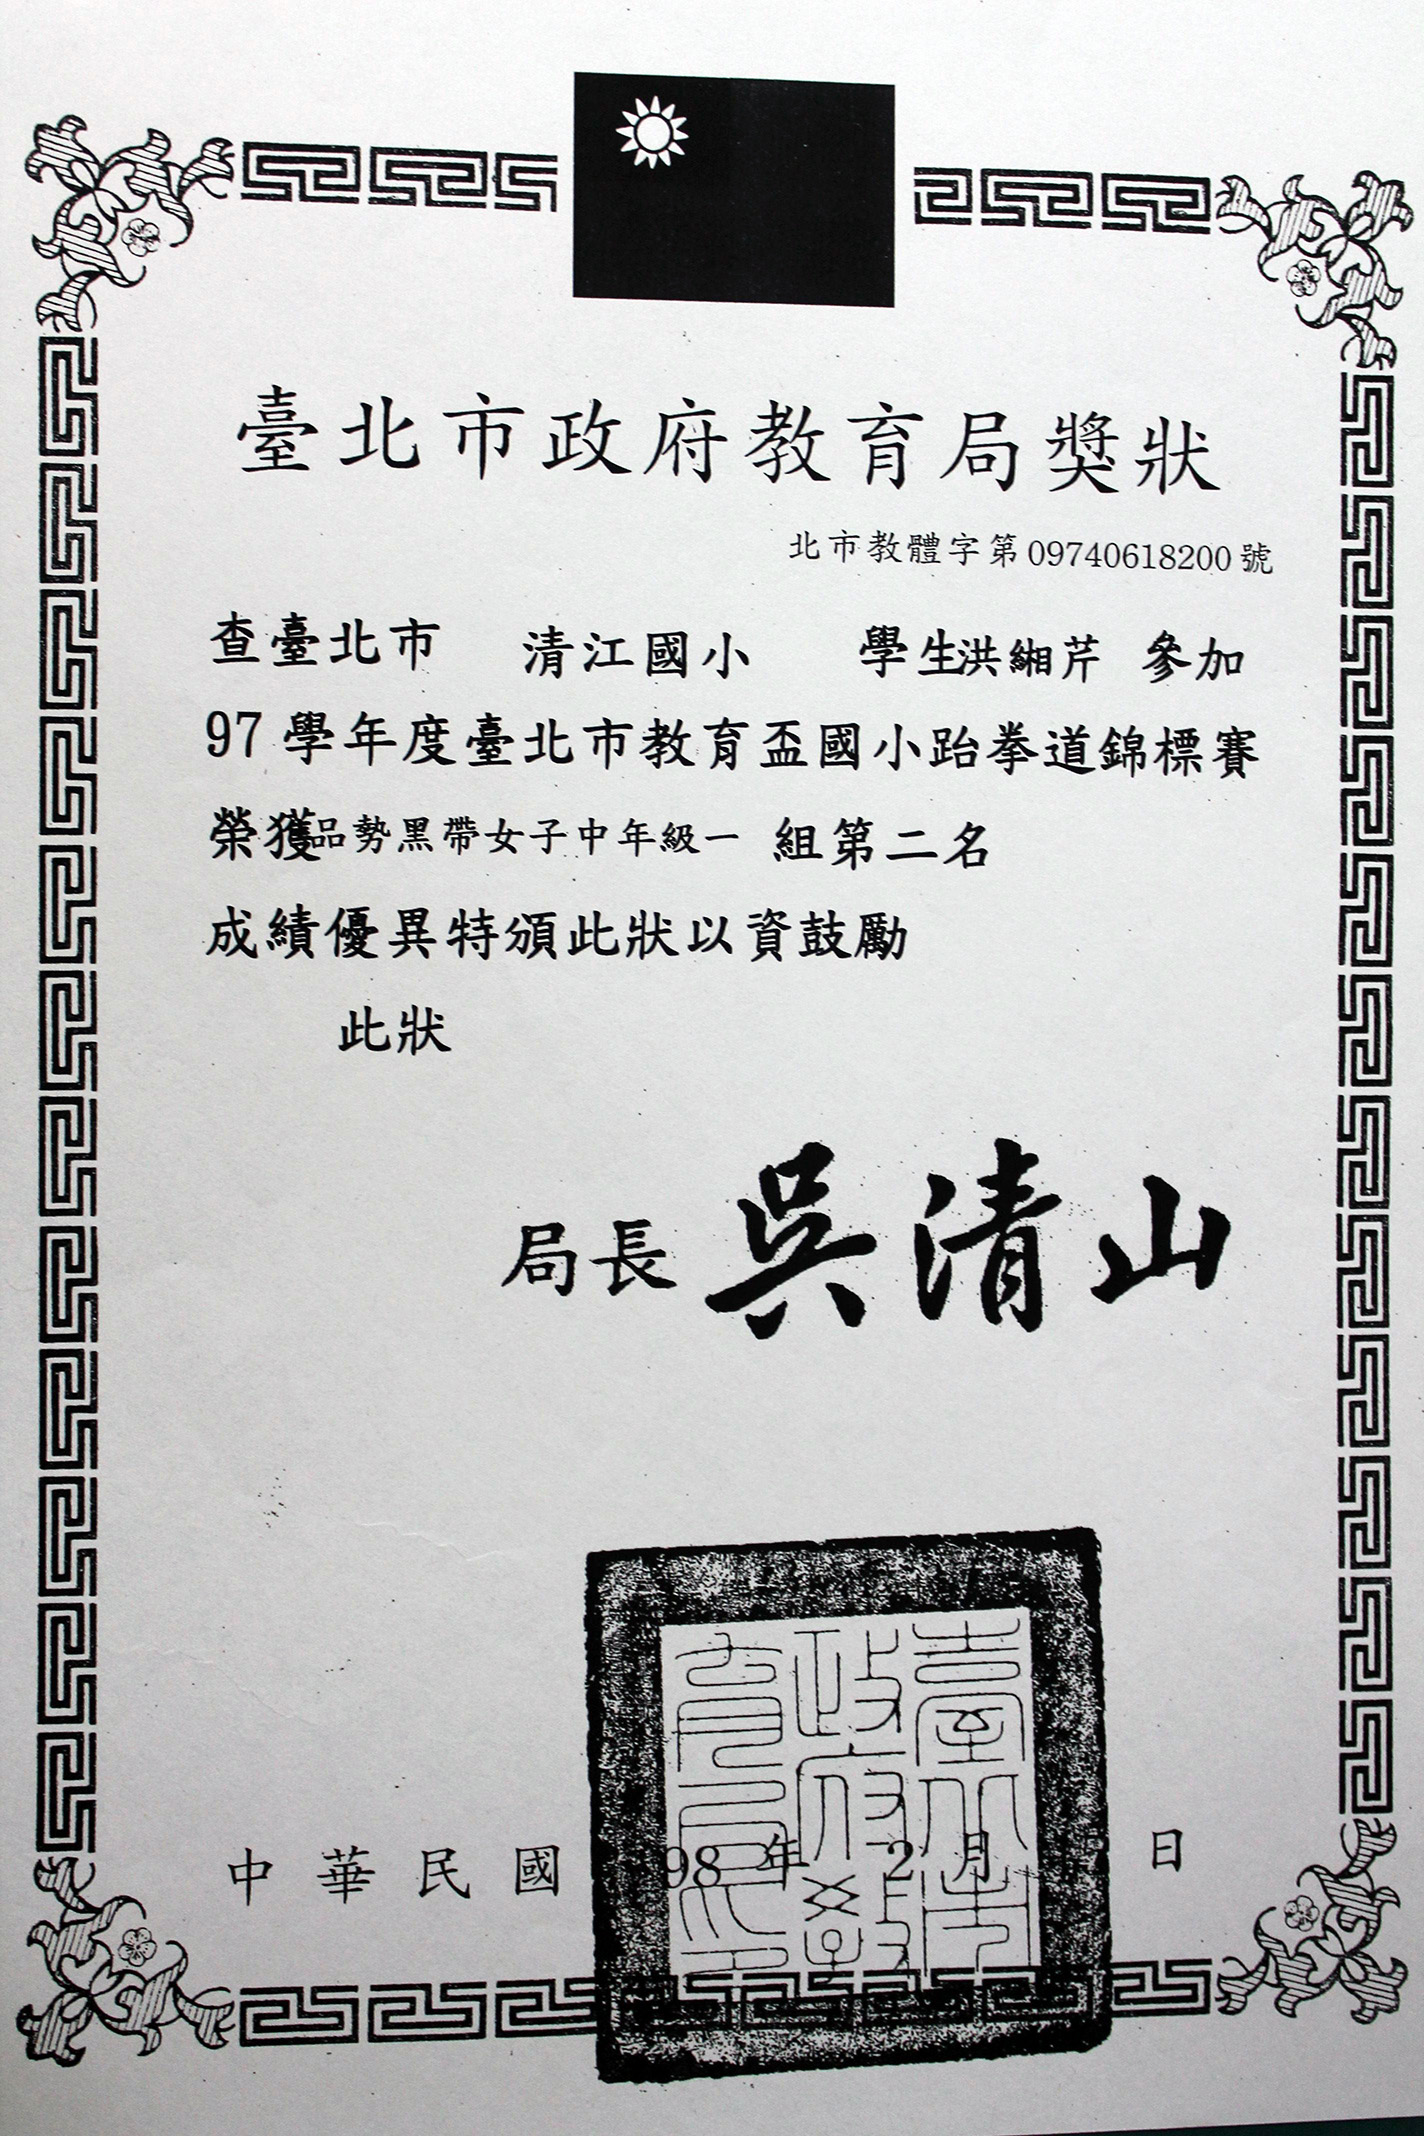 臺北市政府教育局獎狀
北市教體字第09740618200號
查臺北市 清江國小 學生洪緗芹 參加
97學年度臺北市教育盃國小跆拳道錦標賽
榮獲品勢黑帶女子中年級一 組第二名
成績優異特頒此狀以資鼓勵
此狀
局長 吳清山
臺北市政府教育局印
中華民國 98 年 2 月 日